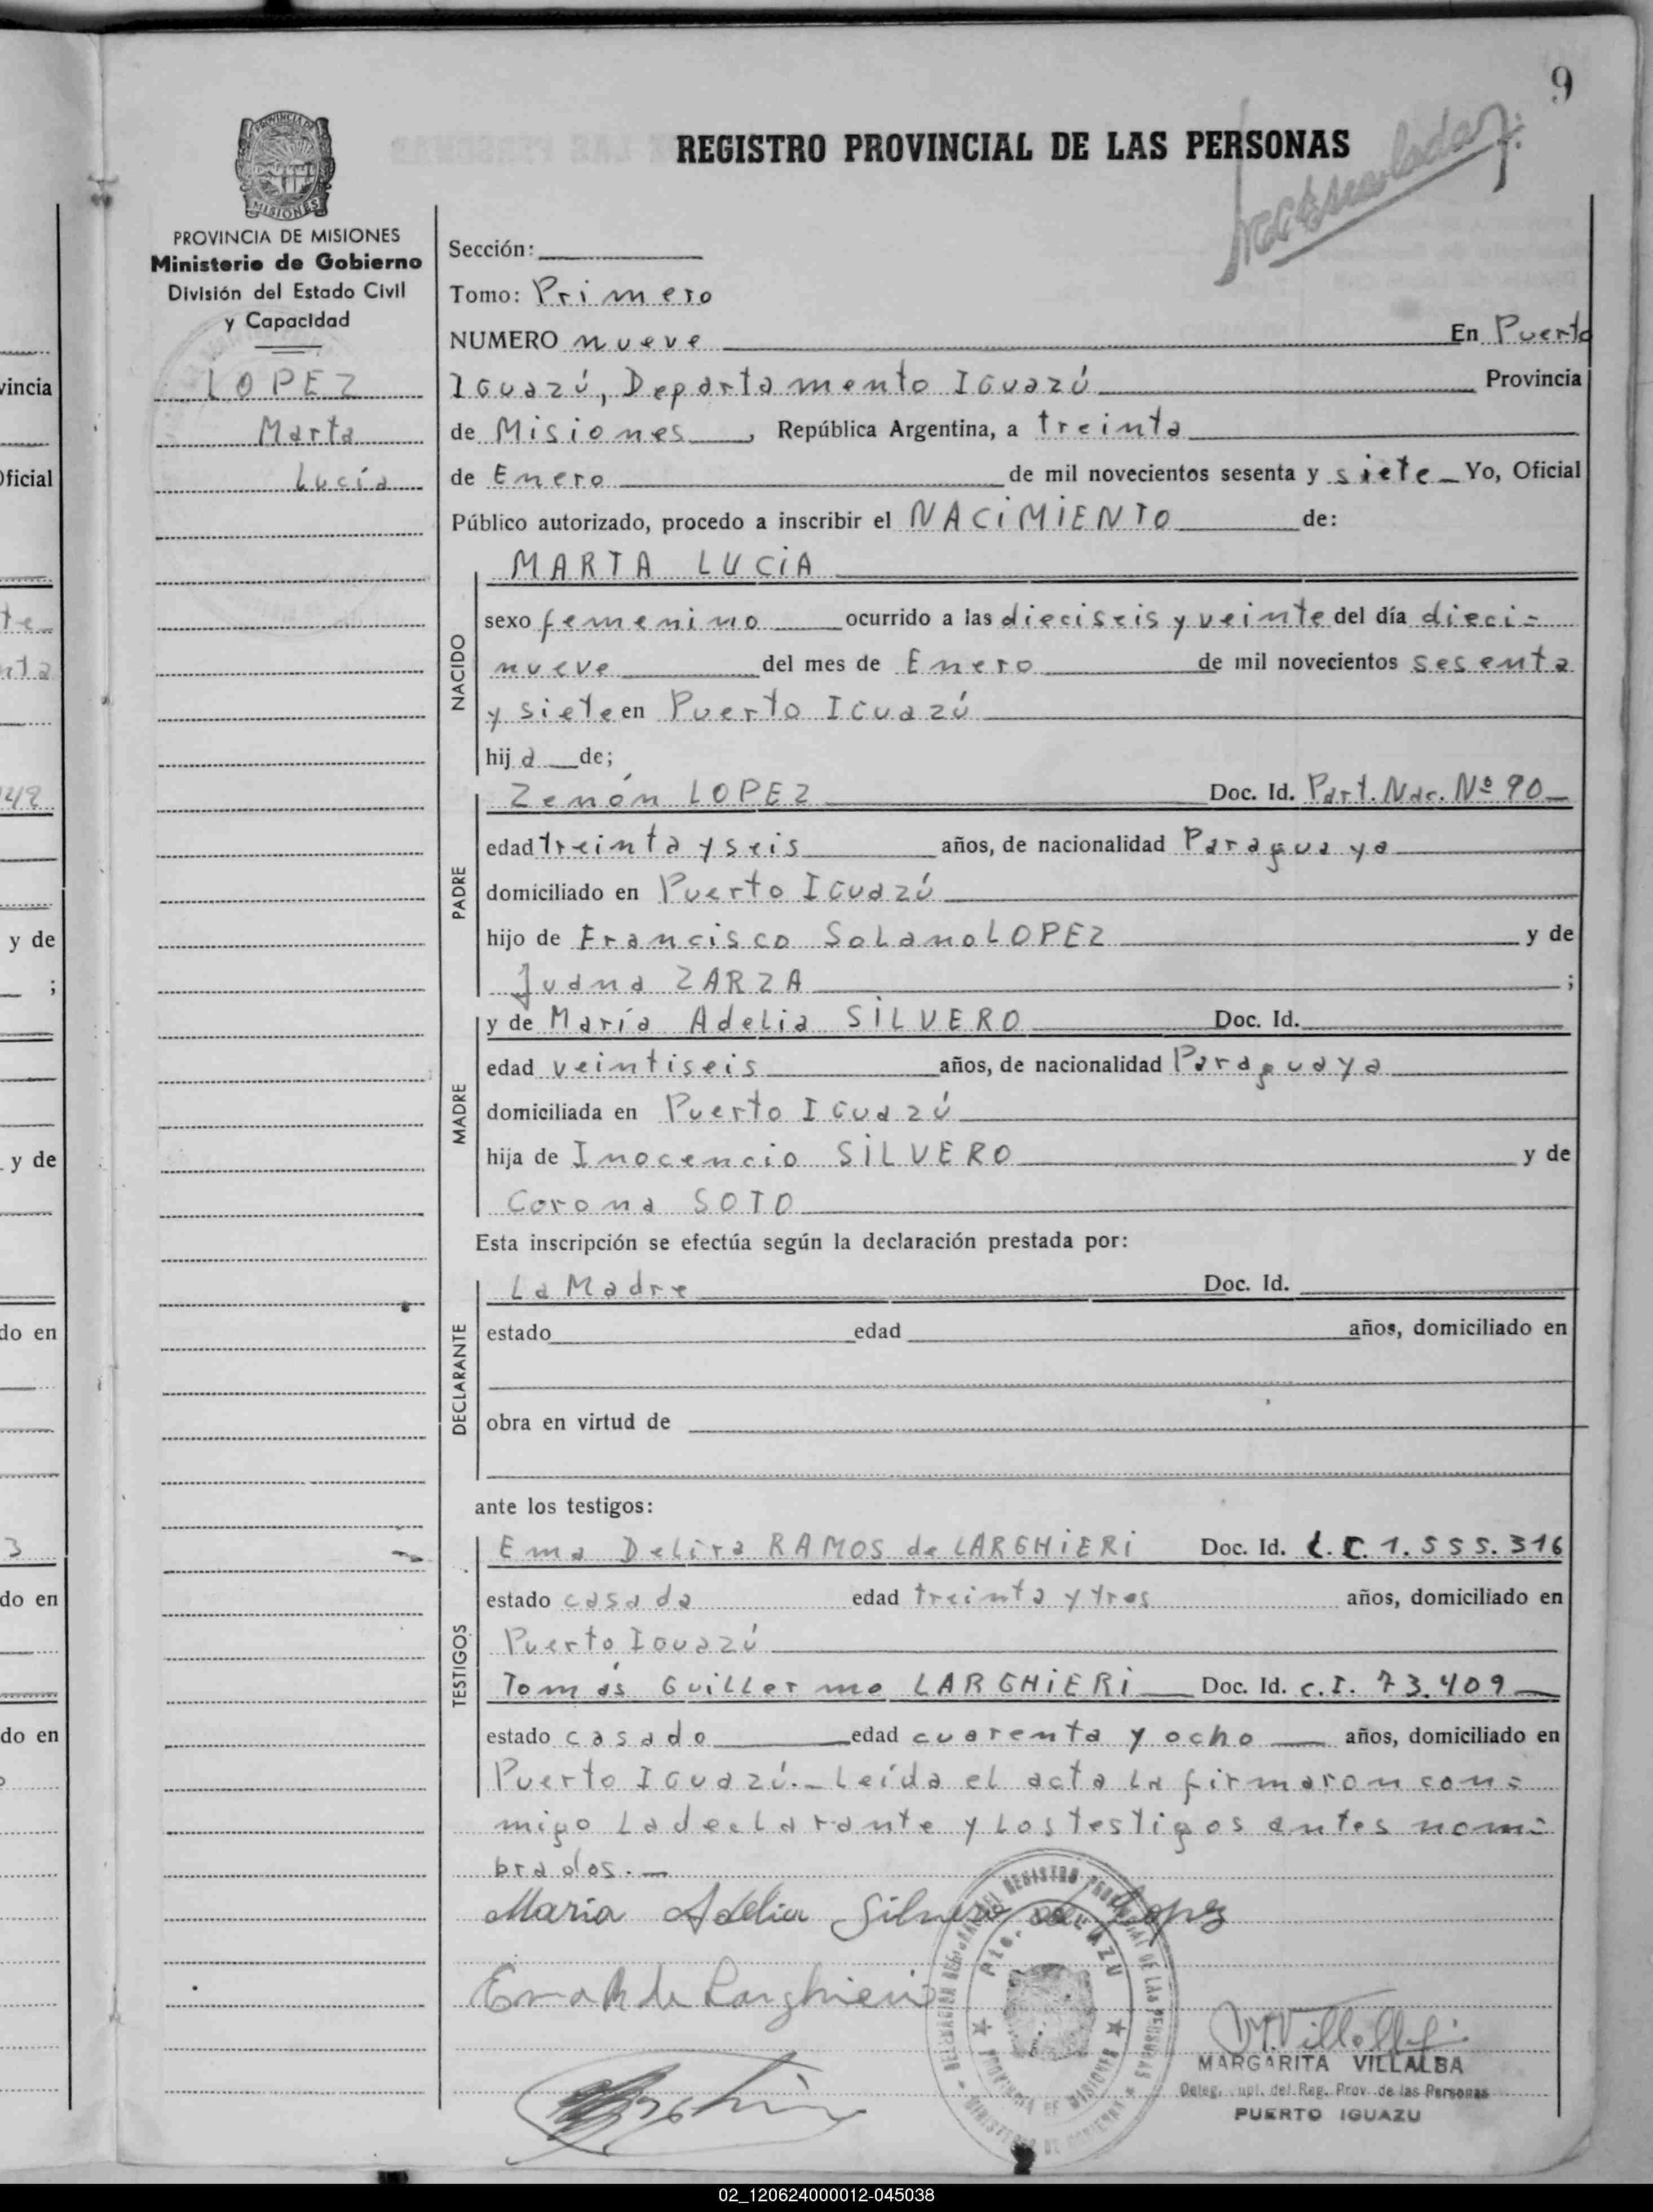 9
REGISTRO PROVINCIAL DE LAS PERSONAS
PROVINCIA DE
MISIONES
PROVINCIA DE MISIONES
Ministerio de Gobierno
División del Estado Civil
y Capacidad
LOPEZ
Marta
Lucía
Sección:
Tomo: Primero
NUMERO nueve En Puerto
Iguazú, Departamento Iguazú Provincia
de Misiones, República Argentina, a treinta
de Enero de mil novecientos sesenta y siete Yo, Oficial
Público autorizado, procedo a inscribir el NACIMIENTO de:
NACIDO
MARTA LUCIA
sexo femenino ocurrido a las dieciseis y veinte del día dieci=
nueve del mes de Enero de mil novecientos sesenta
y siete en Puerto Iguazú
hija de;
PADRE
Zenón LOPEZ Doc. Id. Part. Nac. Nº 90
edad treinta y seis años, de nacionalidad Paraguaya
domiciliado en Puerto Iguazú
hijo de Francisco Solano LOPEZ y de
Juana ZARZA ;
MADRE
y de María Adelia SILVERO Doc. Id.
edad veintiseis años, de nacionalidad Paraguaya
domiciliada en Puerto Iguazú
hija de Inocencio SILVERO y de
Corona SOTO
Esta inscripción se efectúa según la declaración prestada por:
DECLARANTE
La Madre Doc. Id.
estado edad años, domiciliado en
obra en virtud de
ante los testigos:
TESTIGOS
Ema Delira RAMOS de LARGHIERI Doc. Id. L.C. 1.555.316
estado casada edad treinta y tres años, domiciliado en
Puerto Iguazú
Tomás Guillermo LARGHIERI Doc. Id. C.I. 73.409
estado casado edad cuarenta y ocho años, domiciliado en
Puerto Iguazú.- Leída el acta la firmaron con=
migo la declarante y los testigos antes nom=
brados.-
Maria Adelia Silvero de Lopez
Ema R de Larghieri
MARGARITA VILLALBA
Deleg. Supl. del Reg. Prov. de las Personas
PUERTO IGUAZU
PROVINCIA DE MISIONES
vincia
Oficial
y de
;
y de
do en
3
do en
do en
02_120624000012-045038